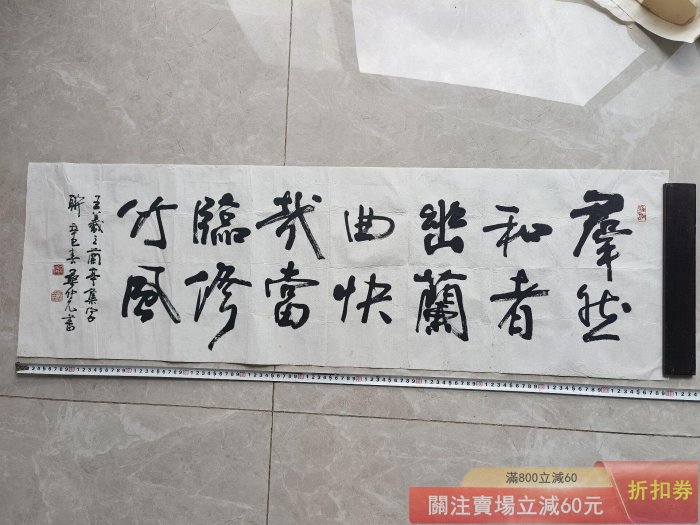 羣然
和者
幽蘭
曲快
哉當
臨修
竹風
王羲之蘭亭集字
聯 辛巳春
滿800立減60
關注賣場立減60元
折扣券